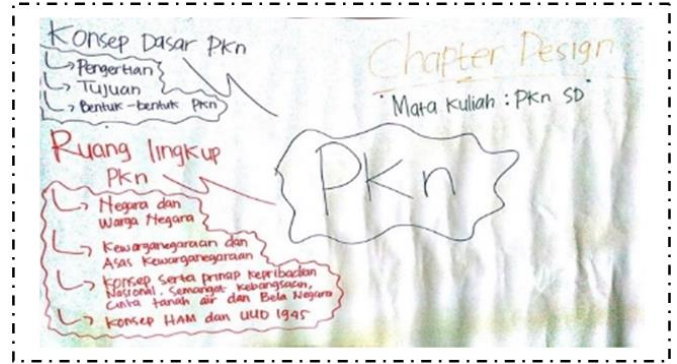 Konsep Dasar PKn
Pengertian
Tujuan
Bentuk-bentuk PKn
Chapter Design
"Mata Kuliah : PKn SD"
PKn
Ruang lingkup
PKn
Negara dan
Warga Negara
Kewarganegaraan dan
Asas Kewarganegaraan
Konsep serta prinap Kepribadian
Nasional, Semangat Kebangsaan,
Cinta tanah air dan Bela Negara
Konsep HAM dan UUD 1945